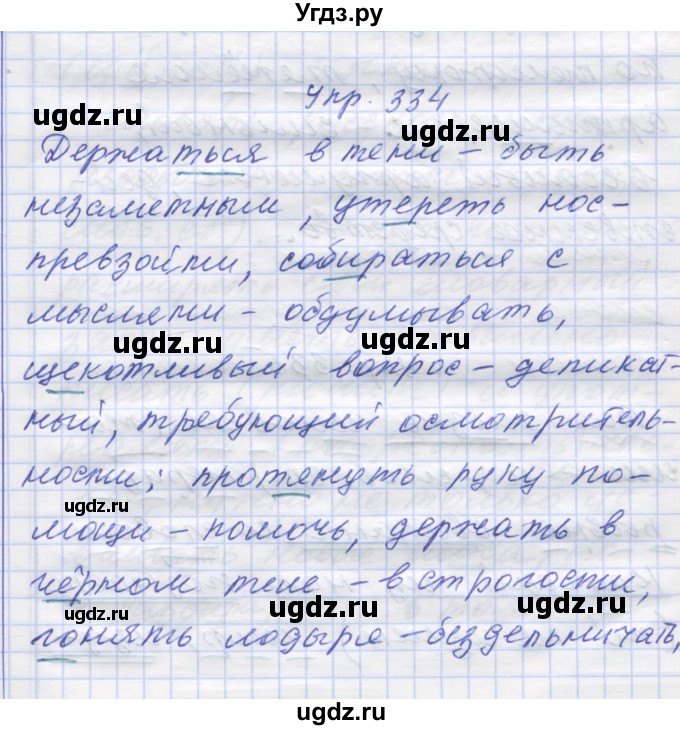 Угдз.ру
Упр. 334
ugdz.ru
ugdz.ru
Держаться в тени – быть
незаметным, утереть нос –
ugdz.ru
превзойти, собираться с
мыслями – обдумывать,
ugdz.ru
ugdz.ru
щекотливый вопрос – деликат-
ный, требующий осмотритель-
ности; протянуть руку по-
ugdz.ru
мощи – помочь, держать в
чёрном теле – в строгости,
ugdz.ru
ugdz.ru
гонять лодыря – бездельничать,
ugdz.ru